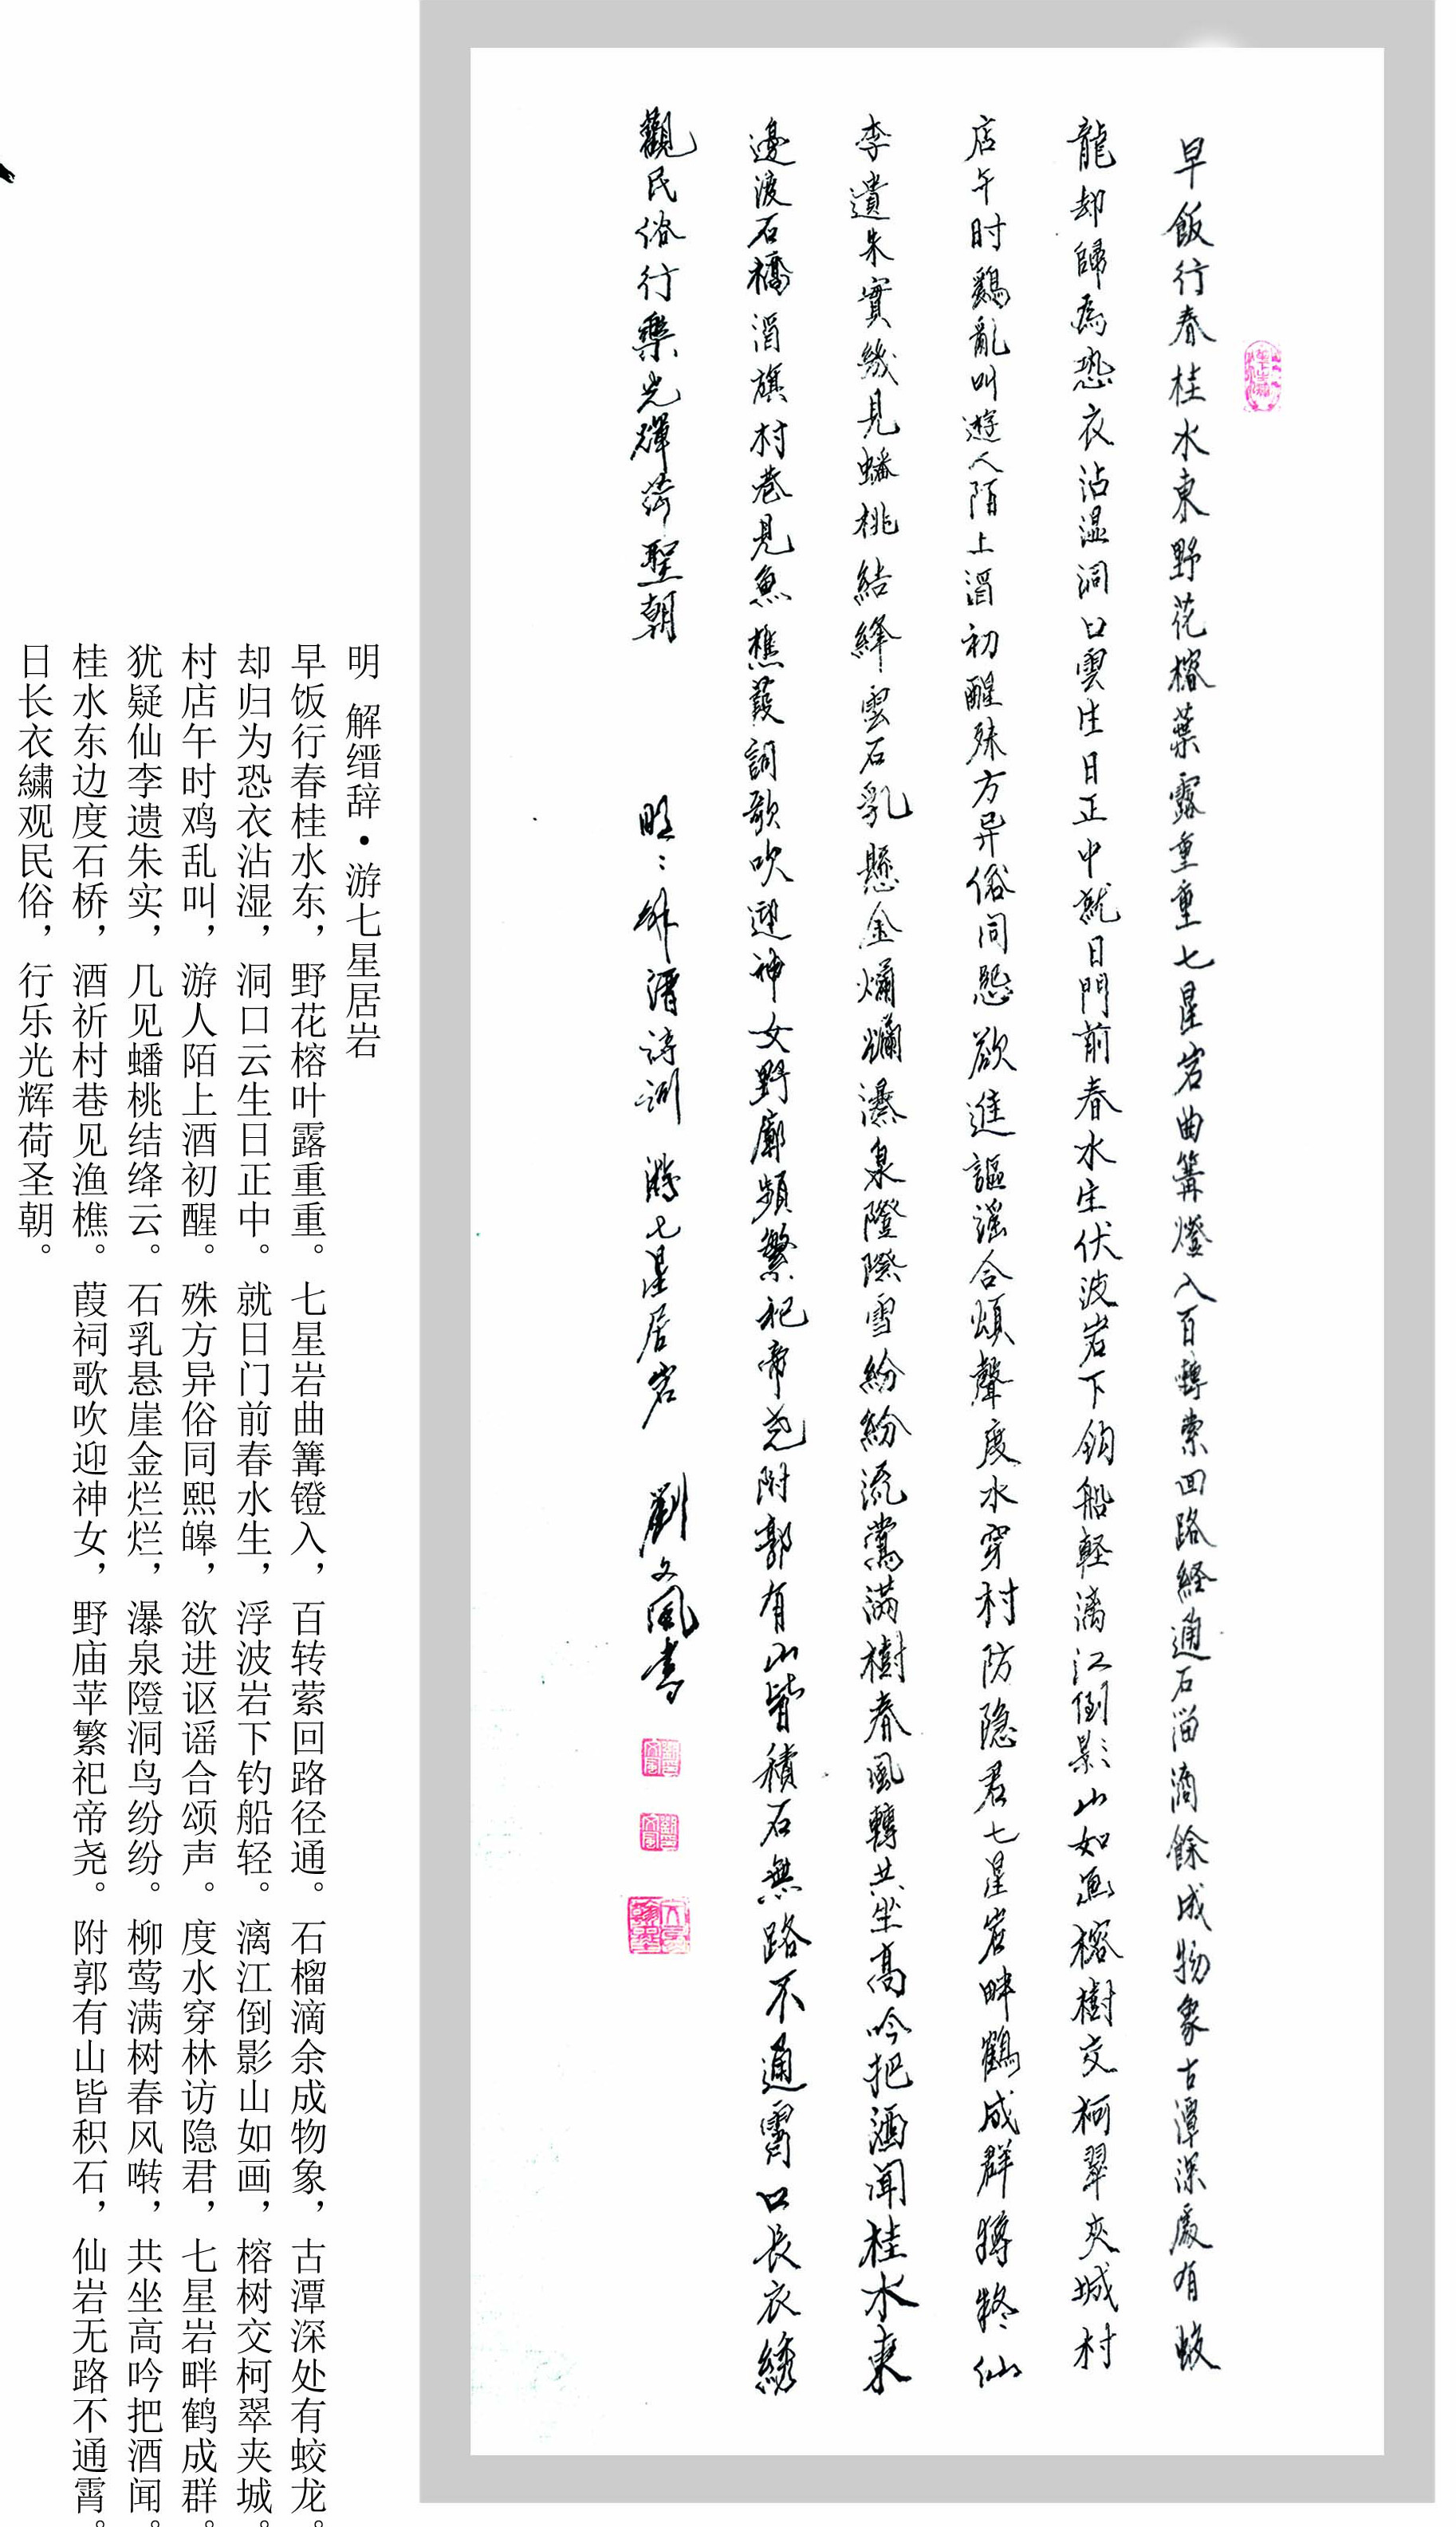 早飯行春桂水東野花榕葉露重重七星岩曲篝燈入百轉萦回路経通石溜滴餘成物象古潭深處有蛟
龍却歸為恐衣沾濕洞口雲生日正中就日門前春水生伏波岩下釣船軽漓江倒影山如画榕樹交柯翠夾城村
店午时鷄亂叫遊人陌上酒初醒殊方异俗同熙欲進謳謡合頌聲度水穿村防隐君七星岩畔鶴成群仙
李遺朱實幾見蟠桃結絳雲石乳懸金爛爛瀑泉隥隙雪紛紛流鶯满樹春風轉共坐高吟把酒聞桂水東
邊渡石橋酒旗村巷見魚樵葭詞歌吹迎神女野廟頻繁祀帝尭附郭有山皆積石無路不通霄日長衣綉
觀民俗行樂光輝荷聖朝
明解溍詩词 游七星居岩 劉文風書
明 解缙辞·游七星居岩
早饭行春桂水东，野花榕叶露重重。七星岩曲篝镫入，百转萦回路径通。石榴滴余成物象，古潭深处有蛟龙。
却归为恐衣沾湿，洞口云生日正中。就日门前春水生，浮波岩下钓船轻。漓江倒影山如画，榕树交柯翠夹城。
村店午时鸡乱叫，游人陌上酒初醒。殊方异俗同熙皞，欲进讴谣合颂声。度水穿林访隐君，七星岩畔鹤成群。
犹疑仙李遗朱实，几见蟠桃结绛云。石乳悬崖金烂烂，瀑泉隥洞鸟纷纷。柳莺满树春风啭，共坐高吟把酒闻。
桂水东边度石桥，酒祈村巷见渔樵。葭祠歌吹迎神女，野庙苹繁祀帝尧。附郭有山皆积石，仙岩无路不通霄。
日长衣繡观民俗，行乐光辉荷圣朝。